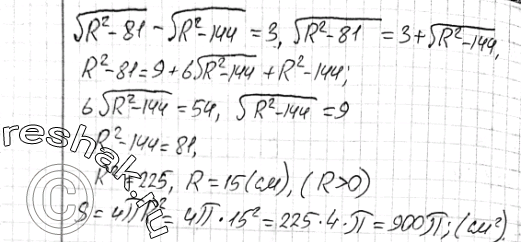 √R²-81 - √R²-144 = 3, √R²-81 = 3+√R²-144,
R²-81=9+6√R²-144 + R²-144;
6√R²-144 = 54, √R²-144 = 9
R²-144=81,
R²=225, R=15(см), (R>0)
S = 4πR² = 4π·15² = 225·4·π = 900π; (см²)
reshak.ru